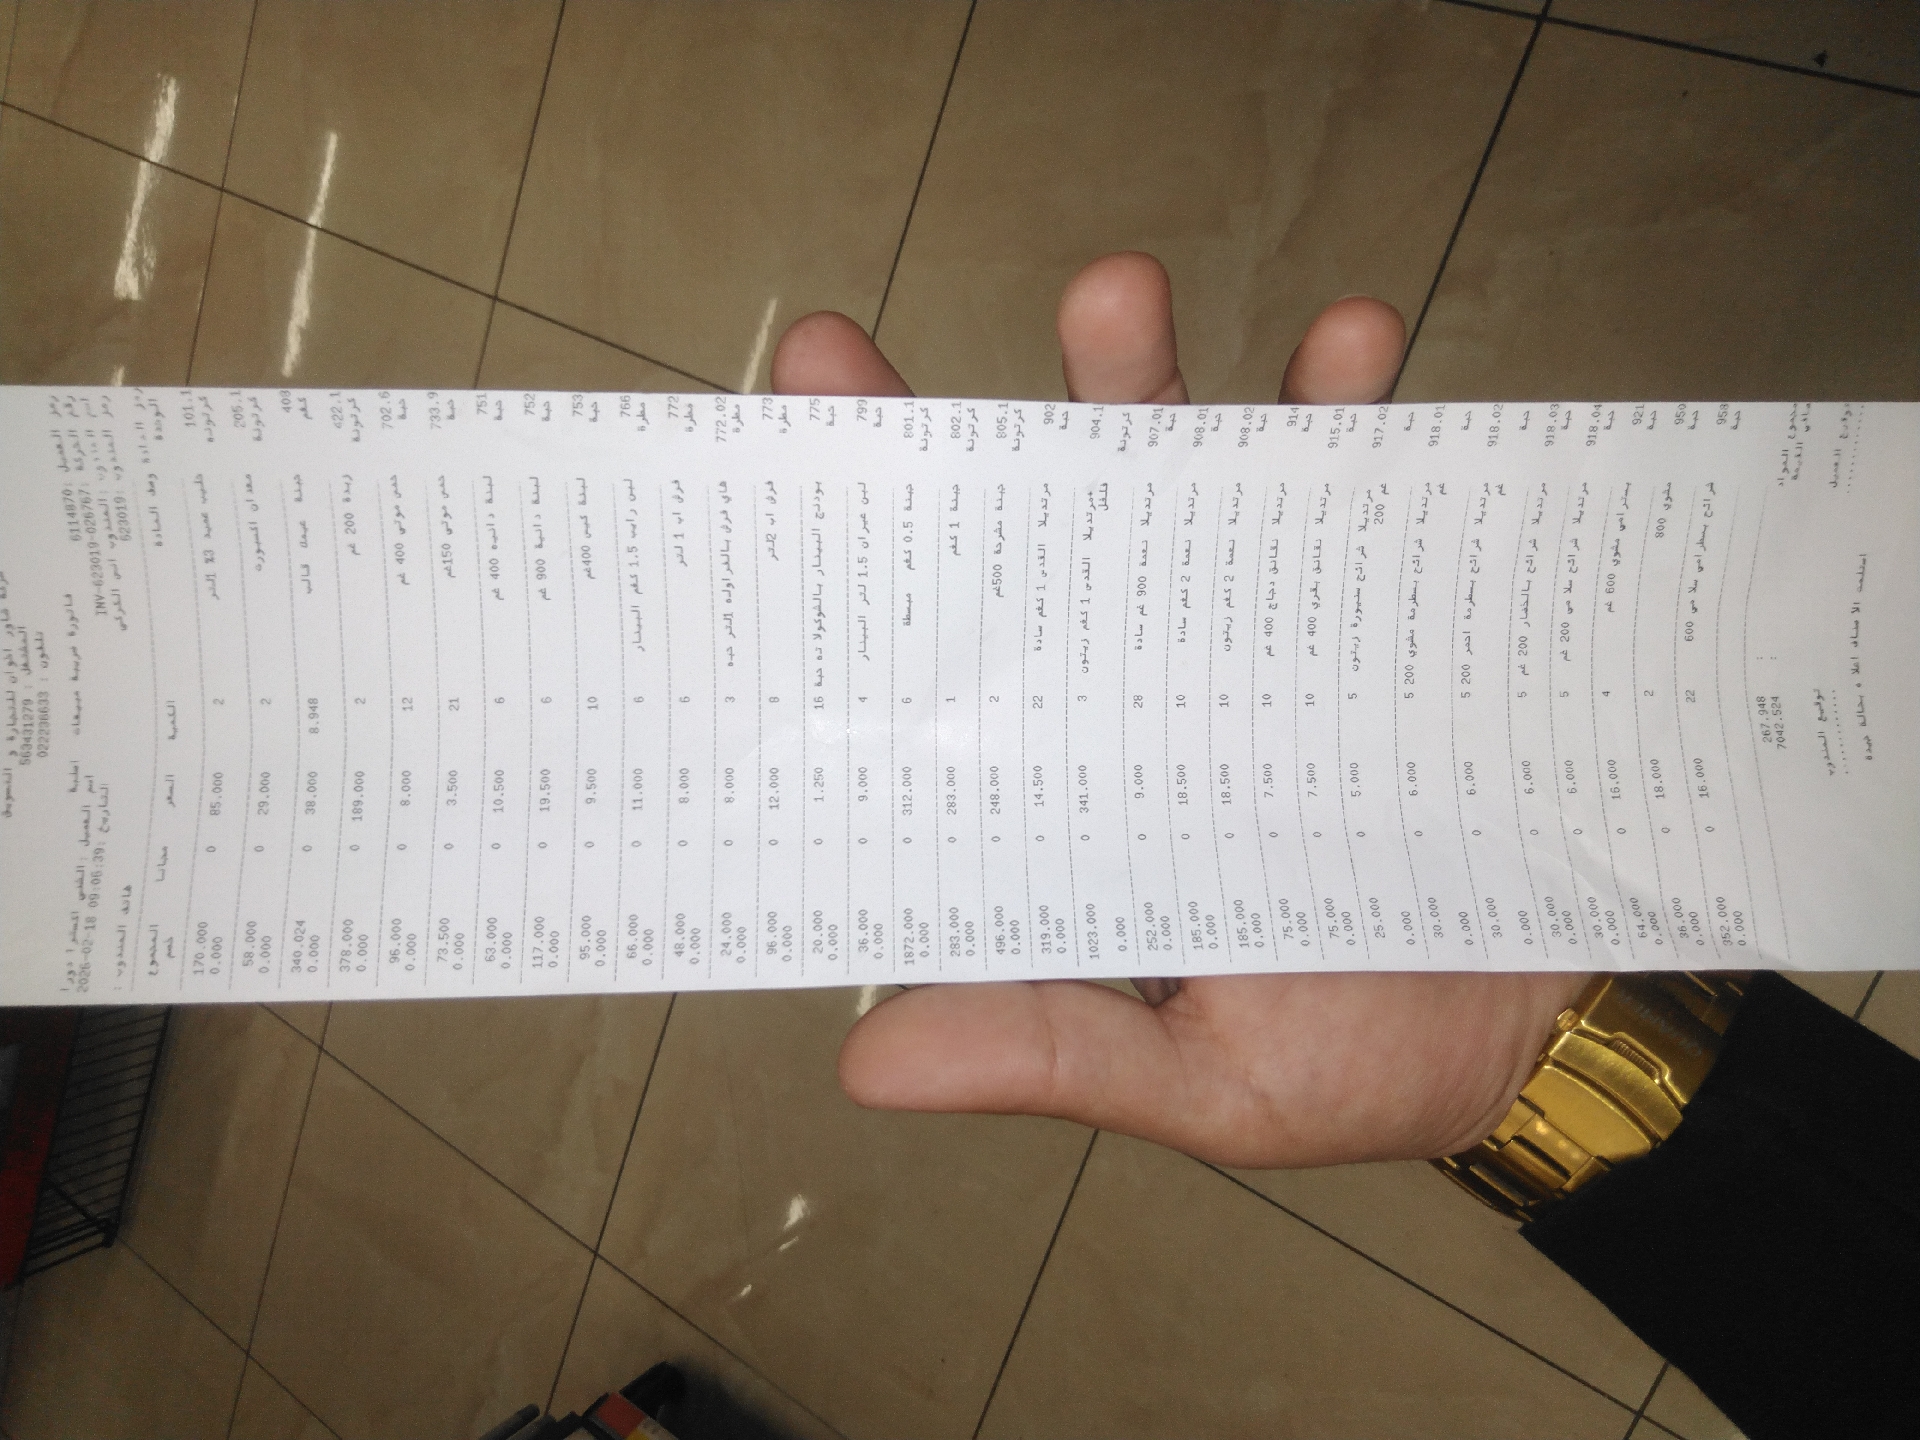 شركة خاور اخوان للتجارة و التسويق
المشتغل : 563431279
تلفون : 022236633
رمز العميل : 6114870 فاتورة ضريبية مبيعات اصلية
رقم الحركة : INV-623019-026767 اسم العميل :
اسم المندوب : المندوب انس التاريخ : 2026-02-18 09:06:39
رمز المندوب : 623019
هاتف المندوب :
رمز المادة وصف المادة الكمية السعر مجانا المجموع
الوحدة خصم
101.1 حليب عميد 3% 1لتر 2 85.000 0 170.000
كرتونة 0.000
205.1 2 29.000 0 58.000
كرتونة 0.000
409 جبنة قالب 8.948 38.000 0 340.024
كغم 0.000
422.1 زبدة 200 غم 2 189.000 0 378.000
كرتونة 0.000
702.6 حمص صوتي 400 غم 12 8.000 0 96.000
حبة 0.000
733.9 حمص صوتي 150غم 21 3.500 0 73.500
حبة 0.000
751 لبنة دانية 400 غم 6 10.500 0 63.000
حبة 0.000
752 لبنة دانية 900 غم 6 19.500 0 117.000
حبة 0.000
753 لبنة كيس 400غم 10 9.500 0 95.000
حبة 0.000
766 لبن رايب 1.5 كغم البينار 6 11.000 0 66.000
مطرة 0.000
772 فرش اب 1 لتر 6 8.000 0 48.000
مطرة 0.000
772.02 هاي فرش بالفراولة 1لتر حبه 3 8.000 0 24.000
مطرة 0.000
773 فرش اب 2لتر 8 12.000 0 96.000
مطرة 0.000
775 بودنج البينار بالشوكولا ته حبة 16 1.250 0 20.000
حبة 0.000
799 لبن عيران 1.5 لتر البينار 4 9.000 0 36.000
حبة 0.000
801.1 جبنة 0.5 كغم مبسطة 6 312.000 0 1872.000
كرتونة 0.000
802.1 جبنة 1 كغم 1 283.000 0 283.000
كرتونة 0.000
805.1 جبنة مشرحة 500غم 2 248.000 0 496.000
كرتونة 0.000
902 مرتديلا القدس 1 كغم سادة 22 14.500 0 319.000
حبة 0.000
904.1 مرتديلا القدس 1 كغم زيتون+ 3 341.000 0 1023.000
كرتونة فلفل 0.000
907.01 مرتديلا نعمة 900 غم سادة 28 9.000 0 252.000
حبة 0.000
908.01 مرتديلا نعمة 2 كغم سادة 10 18.500 0 185.000
حبة 0.000
908.02 مرتديلا نعمة 2 كغم زيتون 10 18.500 0 185.000
حبة 0.000
914 مرتديلا نقانق دجاج 400 غم 10 7.500 0 75.000
حبة 0.000
915.01 مرتديلا نقانق بقري 400 غم 10 7.500 0 75.000
حبة 0.000
917.02 مرتديلا شرائح سنيورة زيتون 5 5.000 0 25.000
حبة 200 غم 0.000
918.01 مرتديلا شرائح بسطرمة مشوي 200 5 6.000 0 30.000
حبة غم 0.000
918.02 مرتديلا شرائح بسطرمة احمر 200 5 6.000 0 30.000
حبة غم 0.000
918.03 مرتديلا شرائح بالخضار 200 غم 5 6.000 0 30.000
حبة 0.000
918.04 مرتديلا شرائح سلامي 200 غم 5 6.000 0 30.000
حبة 0.000
921 بسترامي مشوي 600 غم 4 16.000 0 64.000
حبة 0.000
950 مشوي 800 2 18.000 0 36.000
حبة 0.000
958 شرائح بسطرامي سلامي 600 22 16.000 0 352.000
حبة 0.000
مجموع المواد : 267.948
صافي القيمة : 7042.524
توقيع العميل توقيع المندوب
.......... ..........
استلمت الاصناف اعلاه بحالة جيدة